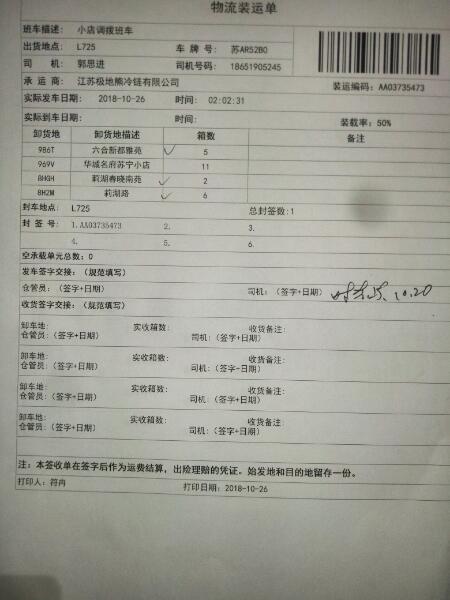 物流装运单
班车描述: 小店调拨班车
出货地点: L725 车 牌 号: 苏AR52B0
司 机: 郭思进 司机号码: 18651905245
承 运 商: 江苏极地熊冷链有限公司 装运编码: AA03735473
实际发车日期: 2018-10-26 时间: 02:02:31
实际到车日期: 时间: 装载率: 50%
卸货地 卸货地描述 箱数 备注
9B6T 六合新都雅苑 5
969V 华城名府苏宁小店 11
8HGH 莉湖春晓南苑 2
8H2M 莉湖路 6
封车地点: L725 总封签数:1
封 签 号: 1.AA03735473 2. 3.
4. 5. 6.
空承载单元总数: 0
发车签字交接: (规范填写)
仓管员: (签字+日期) 司机: (签字+日期) 10.20
收货签字交接: (规范填写)
卸车地: 实收箱数: 收货备注:
仓管员: (签字+日期) 司机: (签字+日期)
卸车地: 实收箱数: 收货备注:
仓管员: (签字+日期) 司机: (签字+日期)
卸车地: 实收箱数: 收货备注:
仓管员: (签字+日期) 司机: (签字+日期)
卸车地: 实收箱数: 收货备注:
仓管员: (签字+日期) 司机: (签字+日期)
注: 本签收单在签字后作为运费结算, 出险理赔的凭证。始发地和目的地留存一份。
打印人: 符冉 打印日期: 2018-10-26